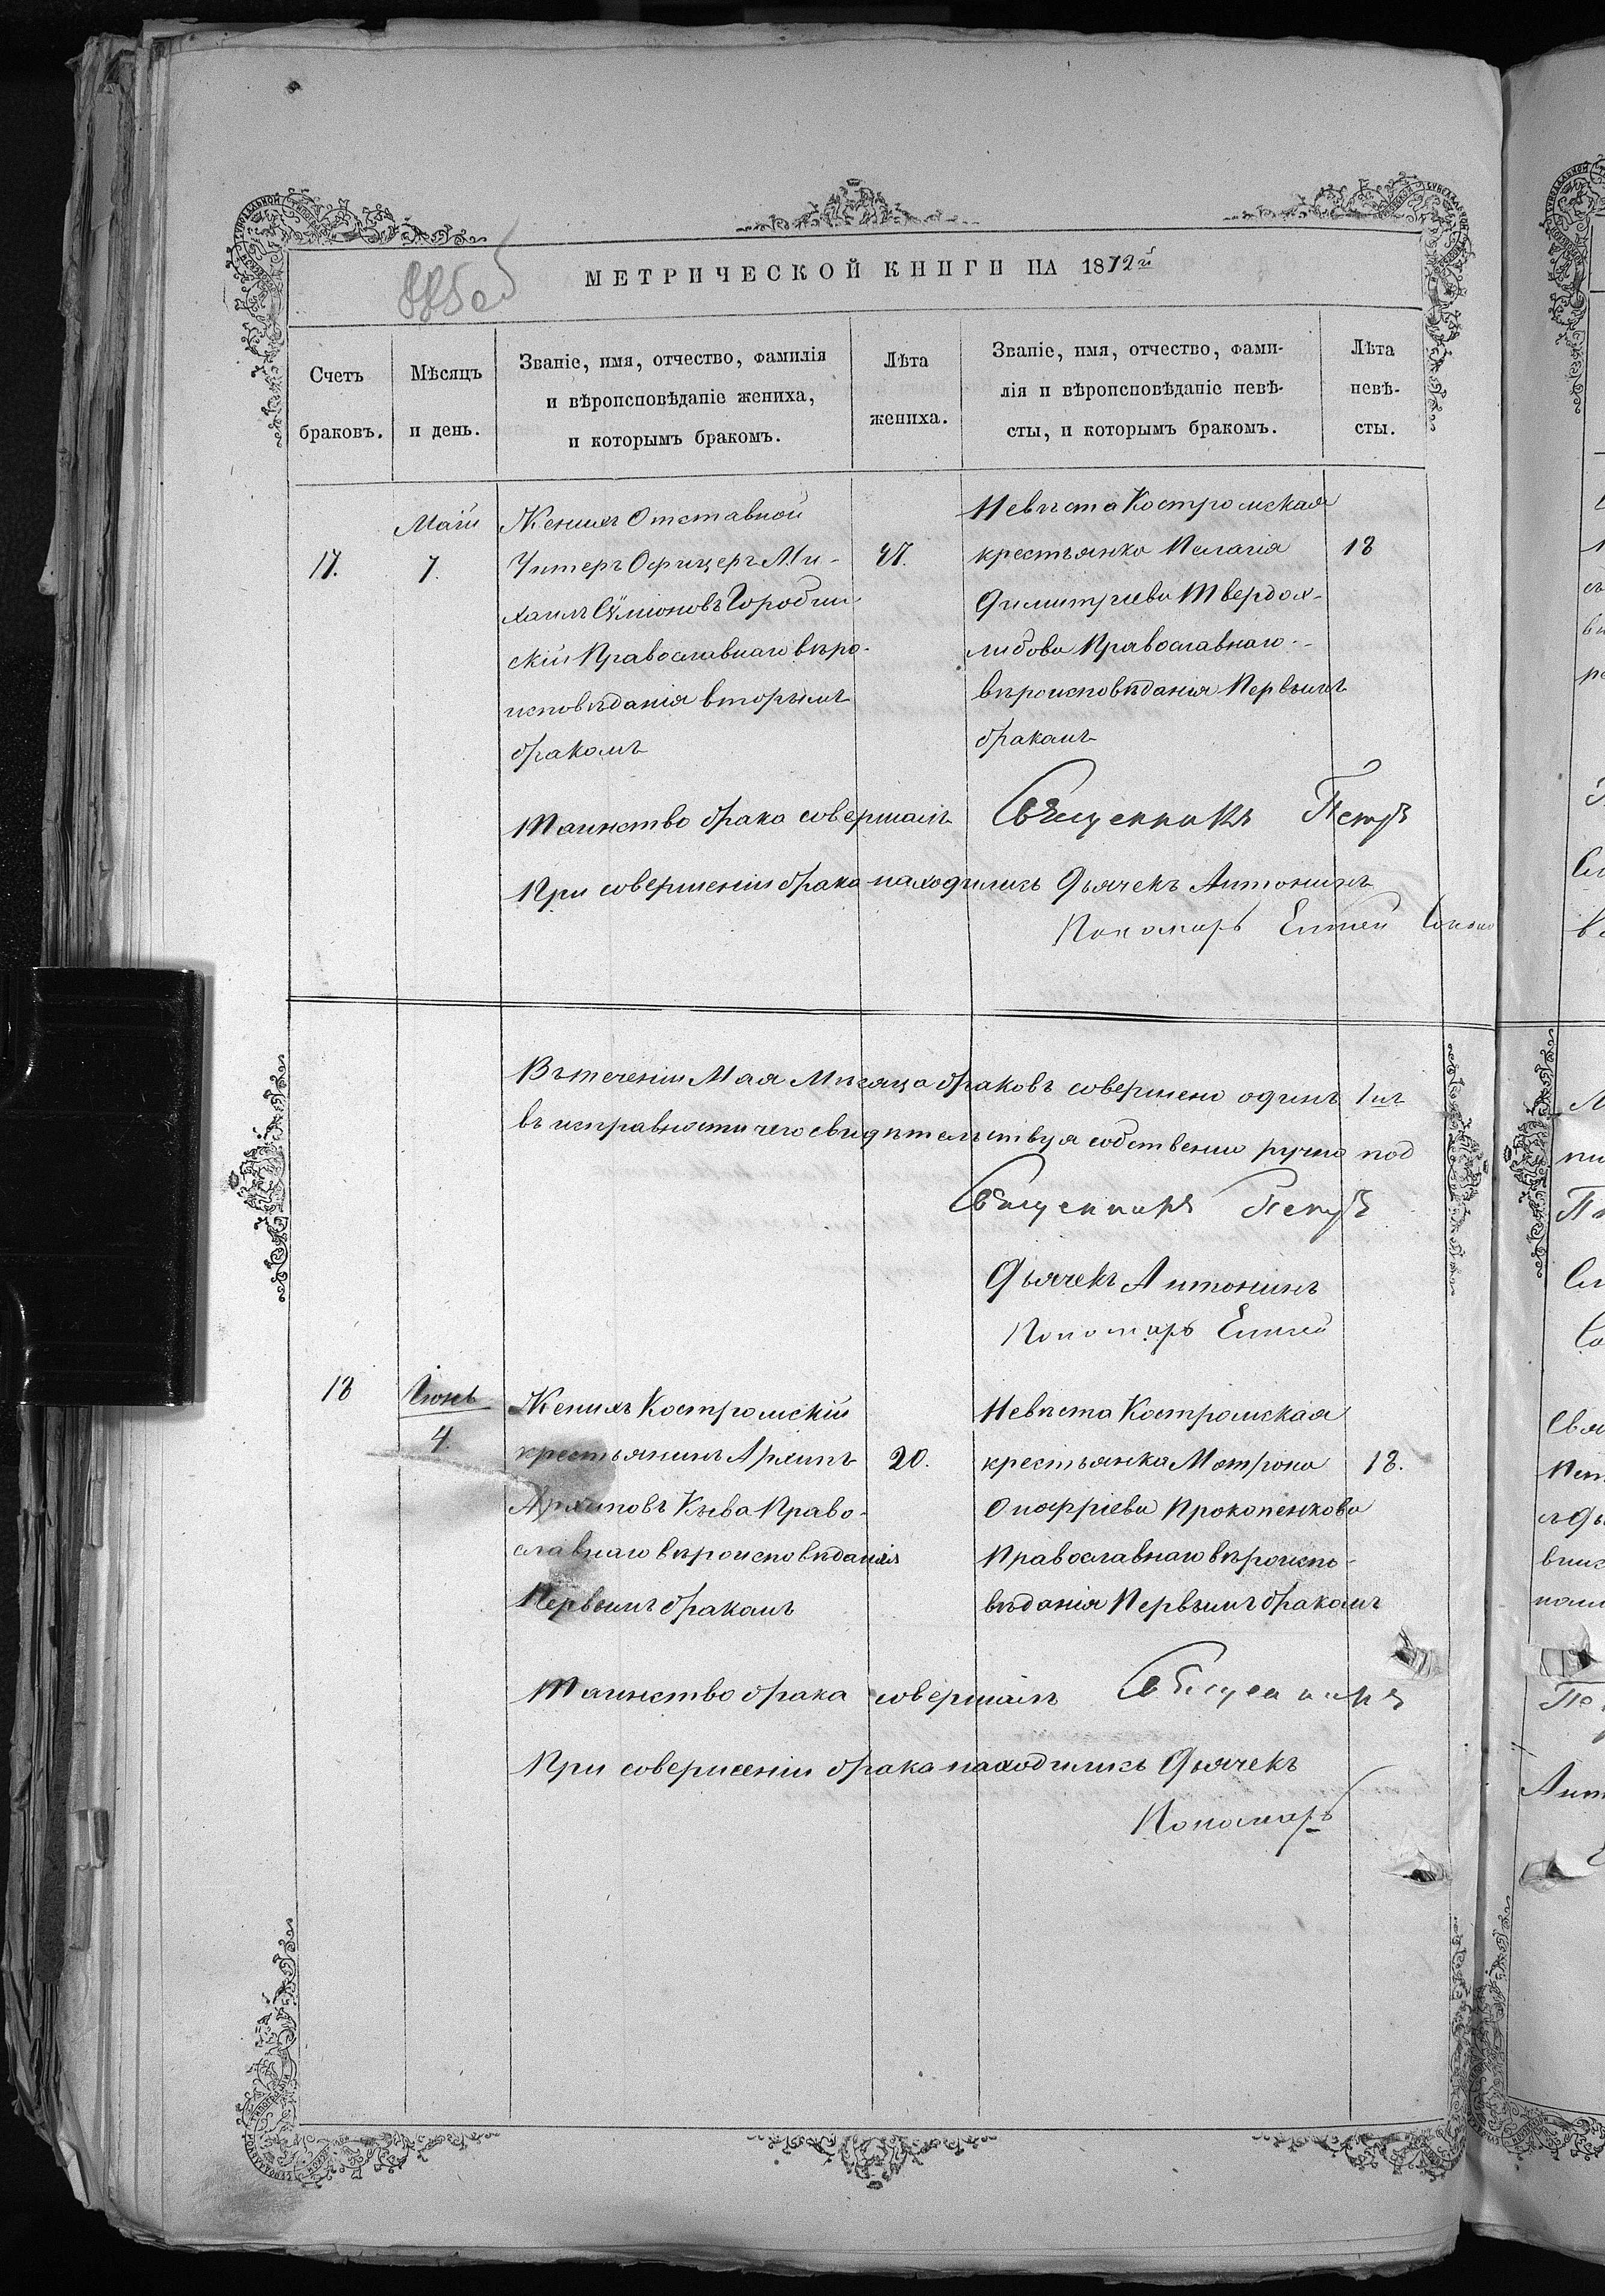 885об
МЕТРИЧЕСКОЙ КНИГИ НА 1872й
Счетъ браковъ.
Мѣсяцъ и день.
Званіе, имя, отчество, фамилія
и вѣроисповѣданіе жениха,
и которымъ бракомъ.
Лѣта
жениха.
Званіе, имя, отчество, фами-
лія и вѣроисповѣданіе невѣ-
сты, и которымъ бракомъ.
Лѣта
невѣ-
сты.
17.
Маій
7.
Женихъ Отставной
Унтеръ Офицеръ Ми-
хаилъ Сѵмеоновъ
скій Православнаго вѣро-
исповѣданія вторымъ
бракомъ
47.
Невѣста Костромская
крестьянка Пелагія
Димитріева Твердох-
либова Православнаго
вѣроисповѣданія Первымъ
бракомъ
18
Таинство брака совершалъ Священникъ Петръ
При совершеніи брака находились Дьячекъ Антонинъ
Пономарь Елисей
Въ теченіи Мая Мѣсяца браковъ совершено одинъ 1нъ
въ исправности чего свидѣтельствуя собственно ручно под
Священникъ Петръ
Дьячекъ Антонинъ
Пономарь Елисей
18
Іюнь
4.
Женихъ Костромскій
крестьянинъ Архипъ
Архиповъ Кѣва Право-
славнаго вѣроисповѣданія
Первымъ бракомъ
20.
Невѣста Костромская
крестьянка Матрона
Онофріева Прокопенкова
Православнаго вѣроиспо-
вѣданія Первымъ бракомъ
18.
Таинство брака совершалъ Священникъ
При совершеніи брака находились Дьячекъ
Пономарь